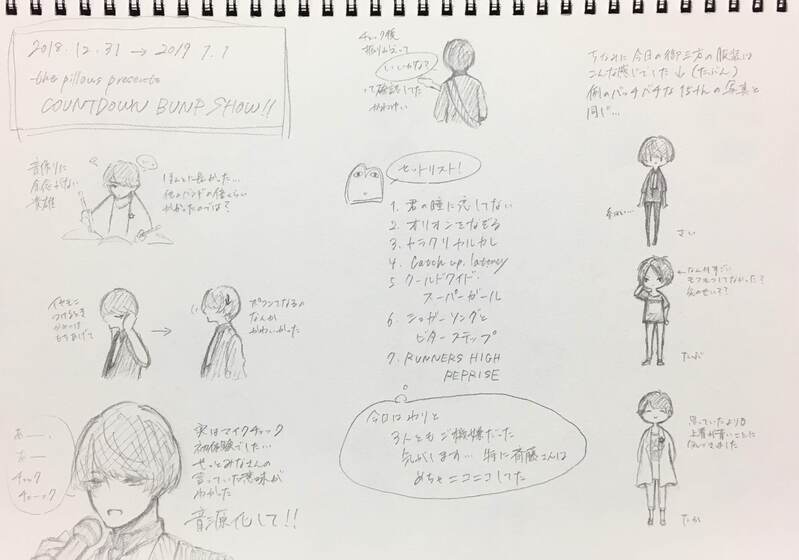 2018.12.31 → 2019 1.1
the pillows presents
COUNTDOWN BUMP SHOW!!
音作りに
余念がない
貴雄
ほんとに長かった…
他のバンドの倍くらい
かかったのでは?
イヤモニ
つけるとき
もちあげて
→
なんか
かわいかった
あー…
あー
チェック
チェーック
実はマイクチェック
初体験でした…
やっとみなさんの
言っていた意味が
わかった
音源化して!!
チェック後
振りむいて
いいかな?
って確認してた
かわいい
セットリスト!
1. 君の瞳に恋してない
2. オリオンをなぞる
3. トラクリカルカレ
4. Catch up, latency
5 ワールドワイド・
スーパーガール
6. シュガーソングと
ビターステップ
7. RUNNERS HIGH
REPRISE
今日はわりと
3人ともご機嫌だった
気がします… 特に斎藤さんは
めちゃニコニコしてた
ちなみに今日の御三方の服装は
こんな感じでした↓(たぶん)
例のバッチバチな15thの写真と
同じ…
さい
←なんかすごい
モフモフしてなかった?
たぶ
思っていたよりも
上着が青いことに
たか